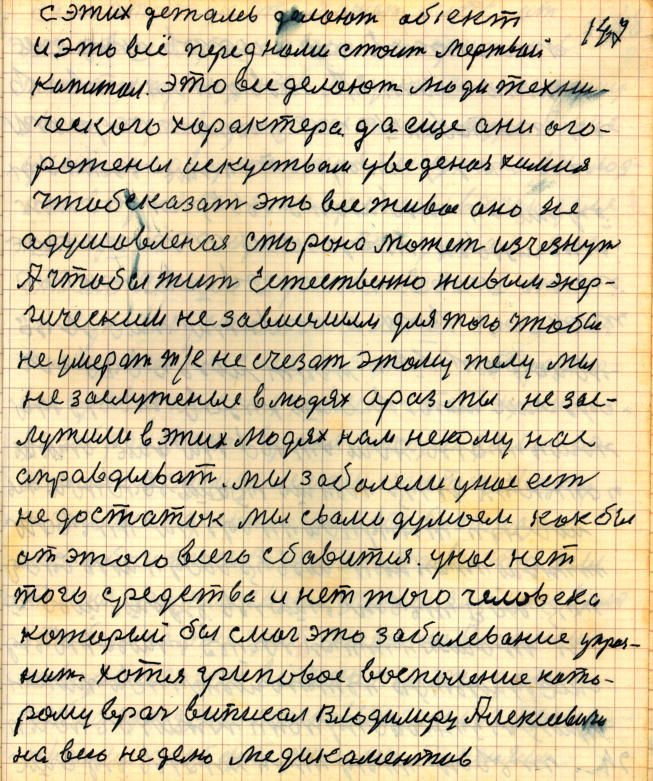 с этих деталев делают обіект 147
и это всё перед нами стоит мертвай
капитал. это все делают люди техни-
ческого характера. да еще ани ого-
рожены искуством уведеная химия
чтоб сказат это все живое оно не
адушевленая сторона может изчезнут
А чтобы жит Естественно живым энер-
гическим не зависимым для того чтобы
не умерат т/е не счезат этому телу мы
не заслуженые в людях а раз мы не зас-
лужили в этих людях нам некому нас
справдыват. мы заболели у нас ест
не достаток мы свами думаем как бы
от этого всего сбавится. у нас нет
того средства и нет того человека
который бы смог это заболевание
хотя гриповое восполение кото-
рому врач виписал Владимиру Алексиевичу
на всю неделю медикаментов